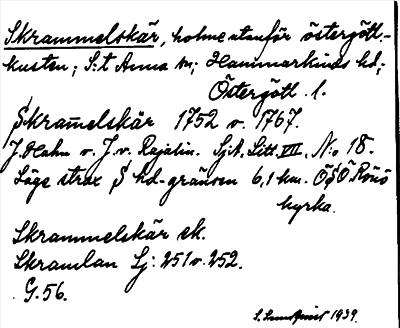 Skrammelskär, holme utanför östergötl.-
kusten; S:t Anna sn; Hammarkinds hd;
Östergötl. l.
Skram̅elskär 1752 o. 1767.
J. Hahn o. J. v. Rajalin. SjA, Litt. VII, No 18.
Läge strax S hd-gränsen 6,1 km. ÖSÖ Rönö
kyrka.
Skrammelskär ek.
Skramlan Lj: 251 o. 252.
G. 56.
1939.